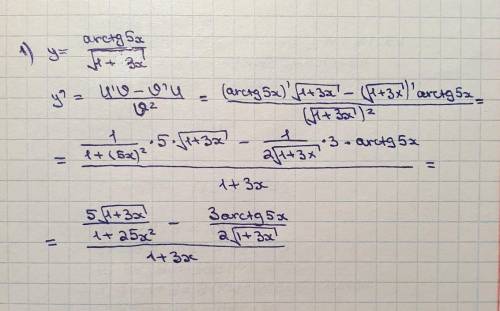 1) y = arctg5x / √(1 + 3x)
y' = (u'v - v'u) / v² = ((arctg5x)' √(1+3x) - (√(1+3x))' arctg5x) / (√(1+3x))² =
= (1/(1+(5x)²) · 5 · √(1+3x) - 1/(2√(1+3x)) · 3 · arctg5x) / (1+3x) =
= (5√(1+3x) / (1+25x²) - 3arctg5x / (2√(1+3x))) / (1+3x)